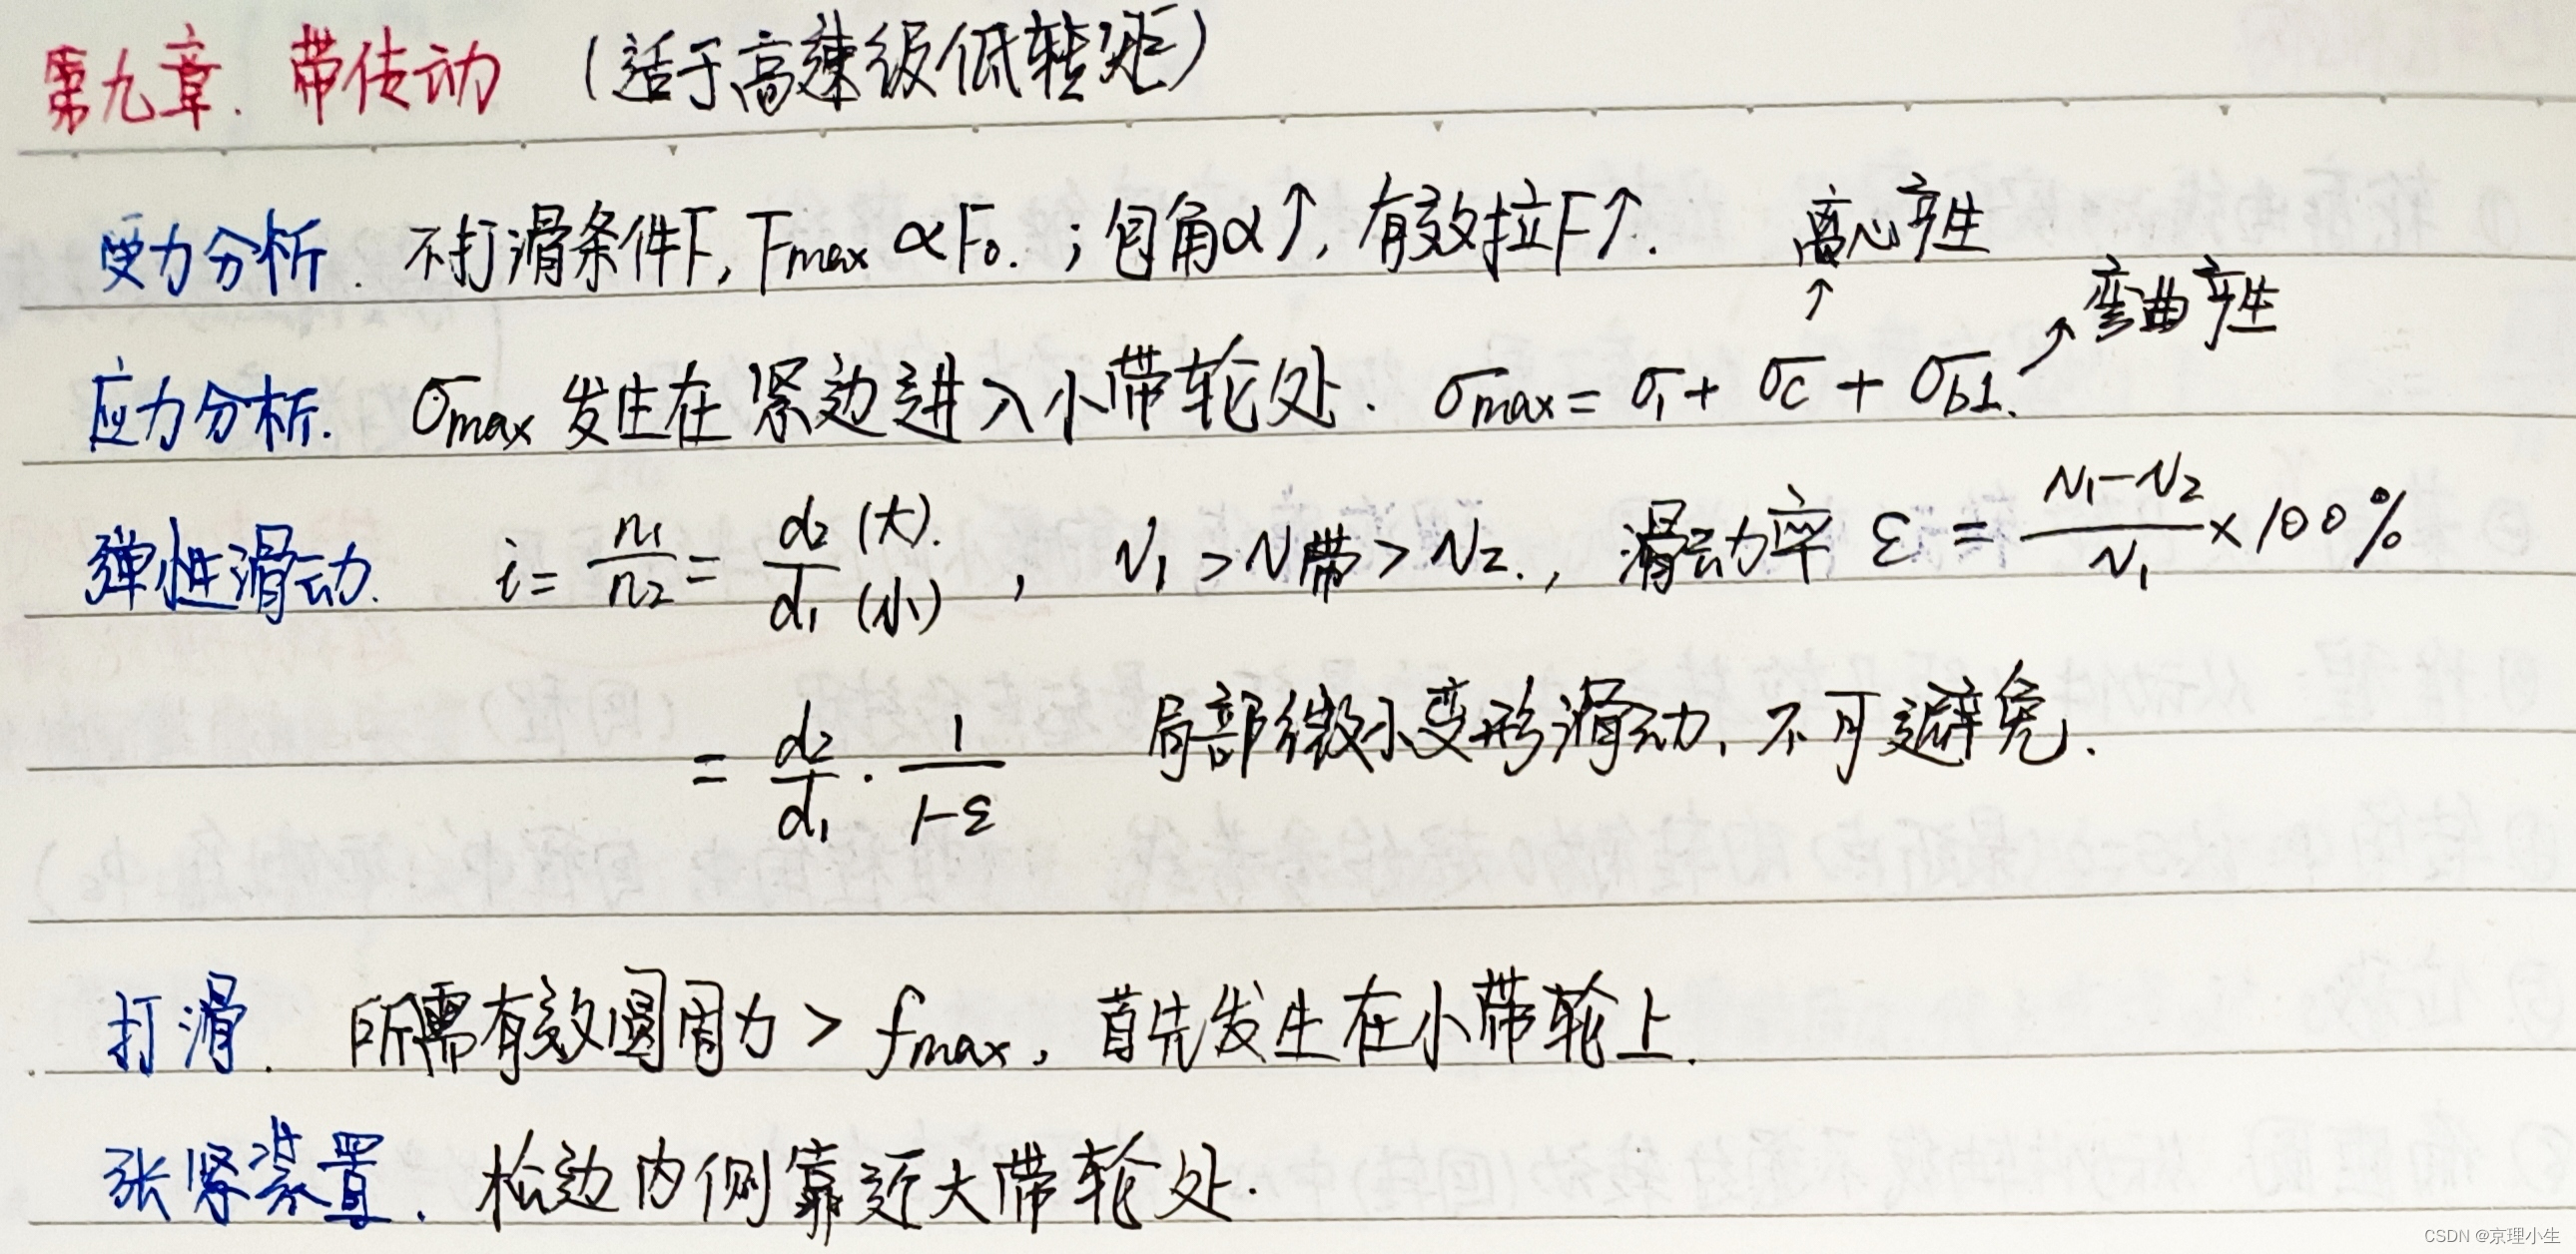 第九章. 带传动 (适于高速级低转矩)
受力分析. 不打滑条件下, Fmax ∝ F₀. ; 包角α↑, 有效拉F↑. 离心产生
↑ 弯曲产生
应力分析. σmax 发生在紧边进入小带轮处. σmax = σ₁ + σc + σb1. ↗
弹性滑动. i = n₁/n₂ = d₂(大)./d₁(小) , v₁ > v带 > v₂. , 滑动率 ε = (v₁-v₂)/v₁ × 100%
= d₂/d₁ · 1/(1-ε) 局部微小变形滑动, 不可避免.
打滑. 所需有效圆周力 > fmax, 首先发生在小带轮上.
张紧装置. 松边内侧靠近大带轮处.
CSDN @京理小生